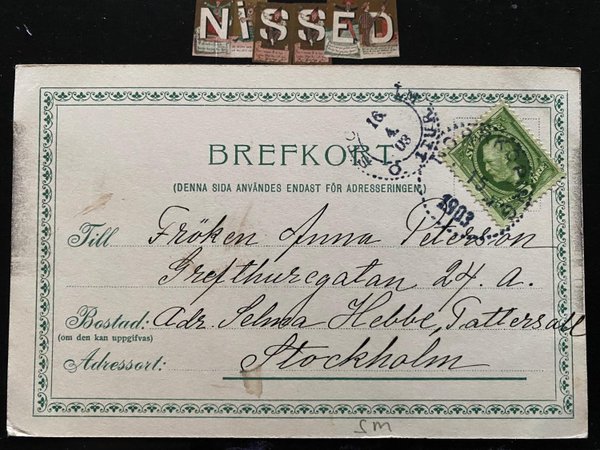 NiSSED
BREFKORT
(DENNA SIDA ANVÄNDES ENDAST FÖR ADRESSERINGEN)
Till Fröken Anna Peterson
Grefthuregatan 24. a.
Bostad: Adr. Selma Hebbe, Tattersall
(om den kan uppgifvas)
Adressort: Stockholm
16
4
03
1903